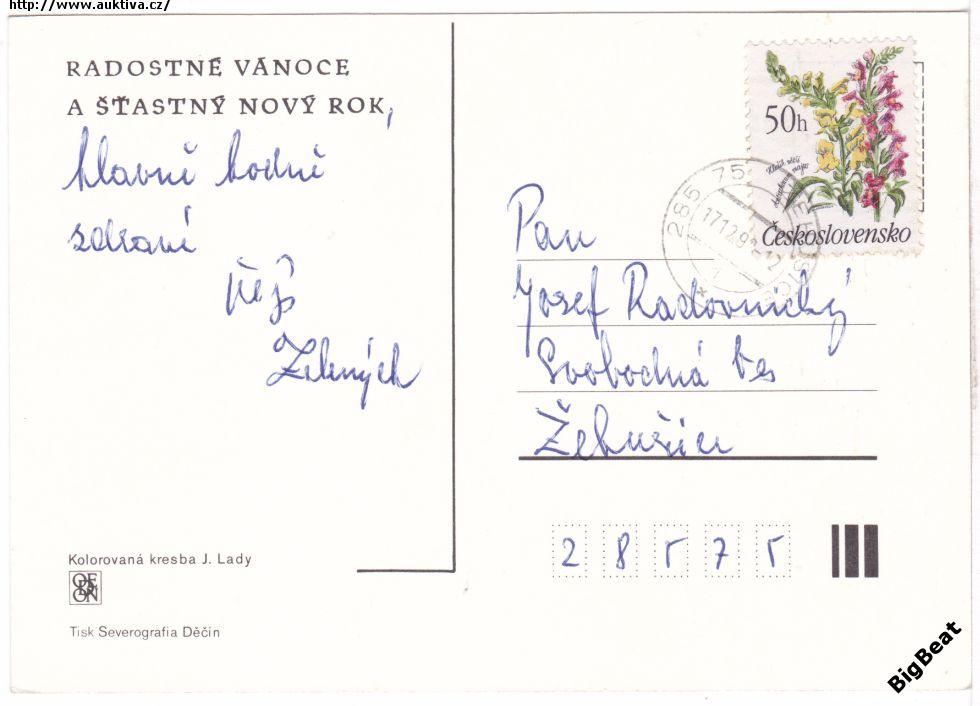 http://www.auktiva.cz/
RADOSTNÉ VÁNOCE
A ŠŤASTNÝ NOVÝ ROK,
hlavně hodně
zdraví
přejí
Zelených
Kolorovaná kresba J. Lady
ORBIS
Tisk Severografia Děčín
50h
Československo
285 75
Pan
Josef Radovnický
Svobodná Ves
Žehušice
28575
BigBeat